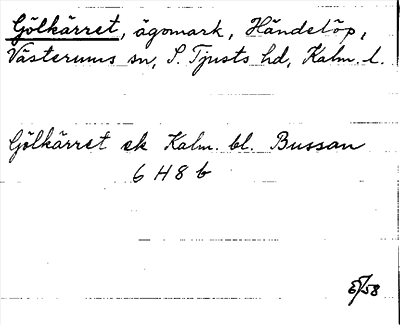 Gölkärret, ägomark, Händelöp,
Västerums sn, S. Tjusts hd, Kalm. l.
Gölkärret ek Kalm. bl. Bussan
6 H 8 b
5/58